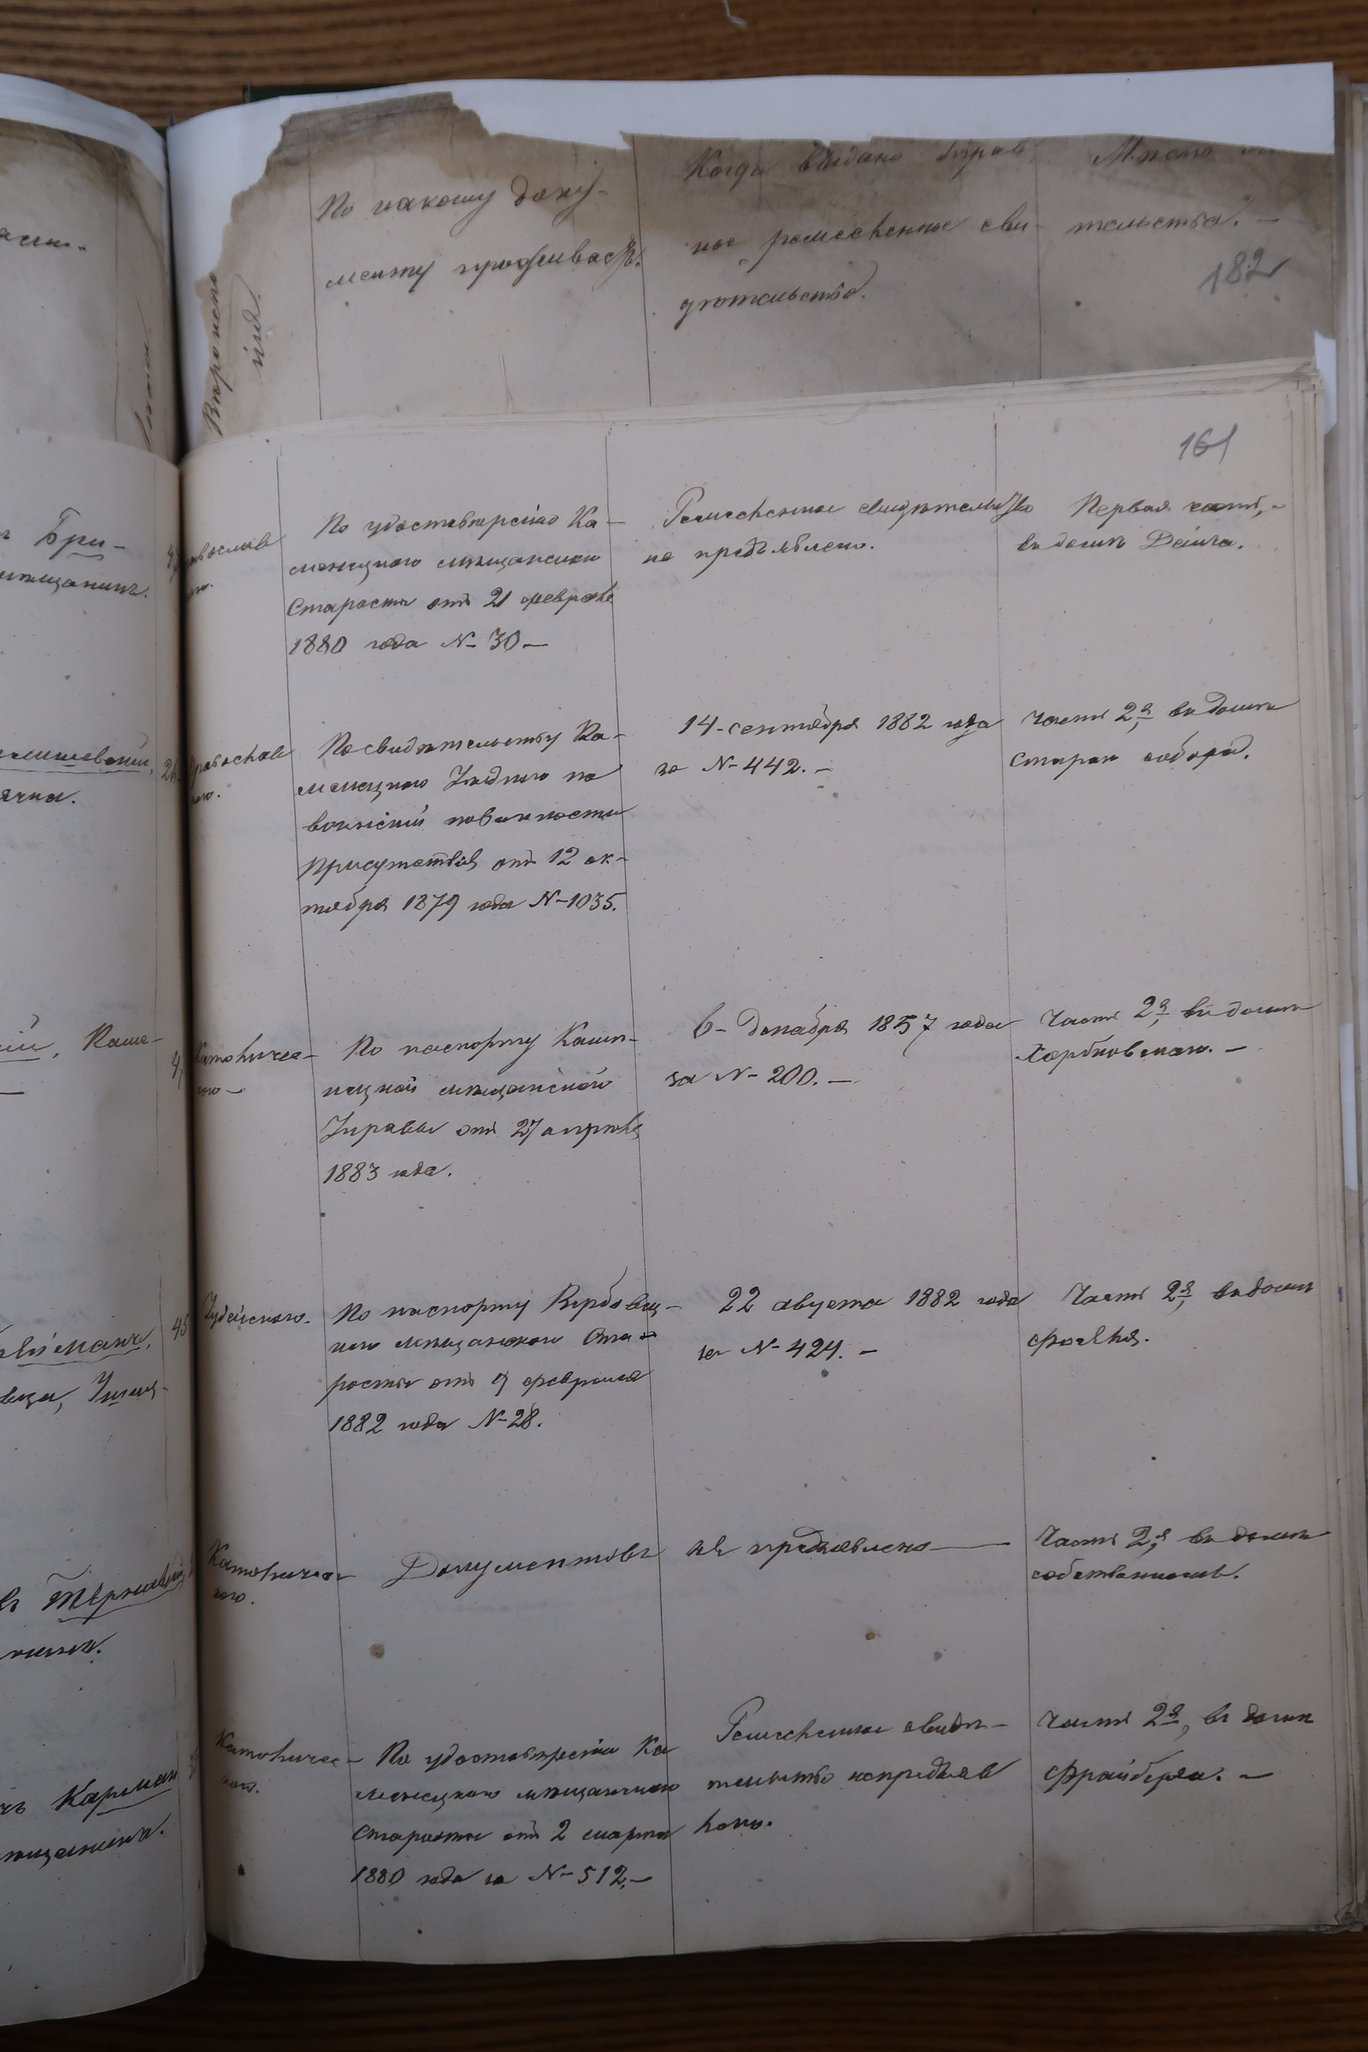 Вѣроиспо
ній.
По какому доку-
менту проживаетъ.
Когда выдано управ
ное ремесленное сви-
дѣтельство.
Мѣсто
тельства. -
182
161
Бри-
мѣщанинъ.
По удостовѣренію Ка-
менецкаго мѣщанскаго
Старосты отъ 21 февраля
1880 года № 30 -
Ремесленное свидѣтельство
не предъявлено.
Первая часть, -
въ домѣ Дейча.
Православ
По свидѣтельству Ка-
менецкаго Уѣзднаго по
воинской повинности
Присутствія отъ 12 ок-
тября 1879 года № 1035.
14 - сентября 1882 года
за № 442. -
Часть 2я, въ домѣ
старом собора.
Каме-
Католичес-
каго -
По паспорту Каме-
нецкой мѣщанской
Управы отъ 27 апрѣля
1883 года.
6 - декабря 1857 года
за № 200. -
Часть 2я, въ домѣ
45
Іудейскаго.
По паспорту Вербовец-
каго мѣщанскаго Ста-
росты отъ 9 февраля
1882 года № 28.
22 августа 1882 года
за № 424. -
Часть 2я, въ домѣ
Фогеля.
Католичес-
каго.
Документовъ не предъявлено
Часть 2я, въ домѣ
собственномъ.
Карман
мѣщанинъ.
Католичес-
каго.
По удостовѣренію Ка
менецкаго мѣщанскаго
Старосты отъ 2 марта
1880 года за № 512. -
Ремесленное свидѣ-
тельство непредъяв
лено.
Часть 2я, въ домѣ
Фрайберга. -